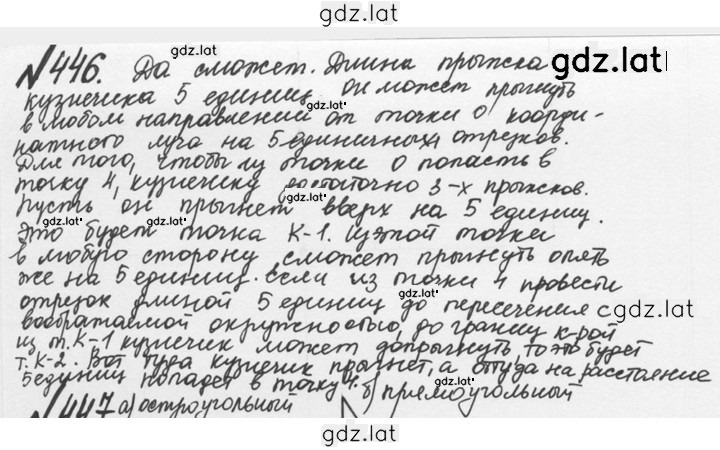 gdz.lat
gdz.lat
№446. Да сможет. Длина прыжка
gdz.lat
кузнечика 5 единиц он может прыгнуть
gdz.lat
в любом направлении от точки О коорди-
натного луча на 5 единичных отрезков.
gdz.lat
Для того, чтобы из точки О попасть в
точку 4, кузнечику достаточно 3-х прыжков.
gdz.lat
Пусть он прыгнет вверх на 5 единиц.
gdz.lat
Это будет точка К-1. Из этой точки
в любую сторону сможет прыгнуть опять
gdz.lat
же на 5 единиц. Если из точки 4 провести
отрезок длиной 5 единиц до пересечения с
gdz.lat
gdz.lat
воображаемой окружностью, до границ к-рой
из т. К-1 кузнечик может допрыгнуть, то это будет
gdz.lat
т. К-2. Вот туда кузнечик прыгнет, а оттуда на расстояние
5 единиц попадет в точку 4.
gdz.lat
№447 а) остроугольный б) прямоугольный
gdz.lat